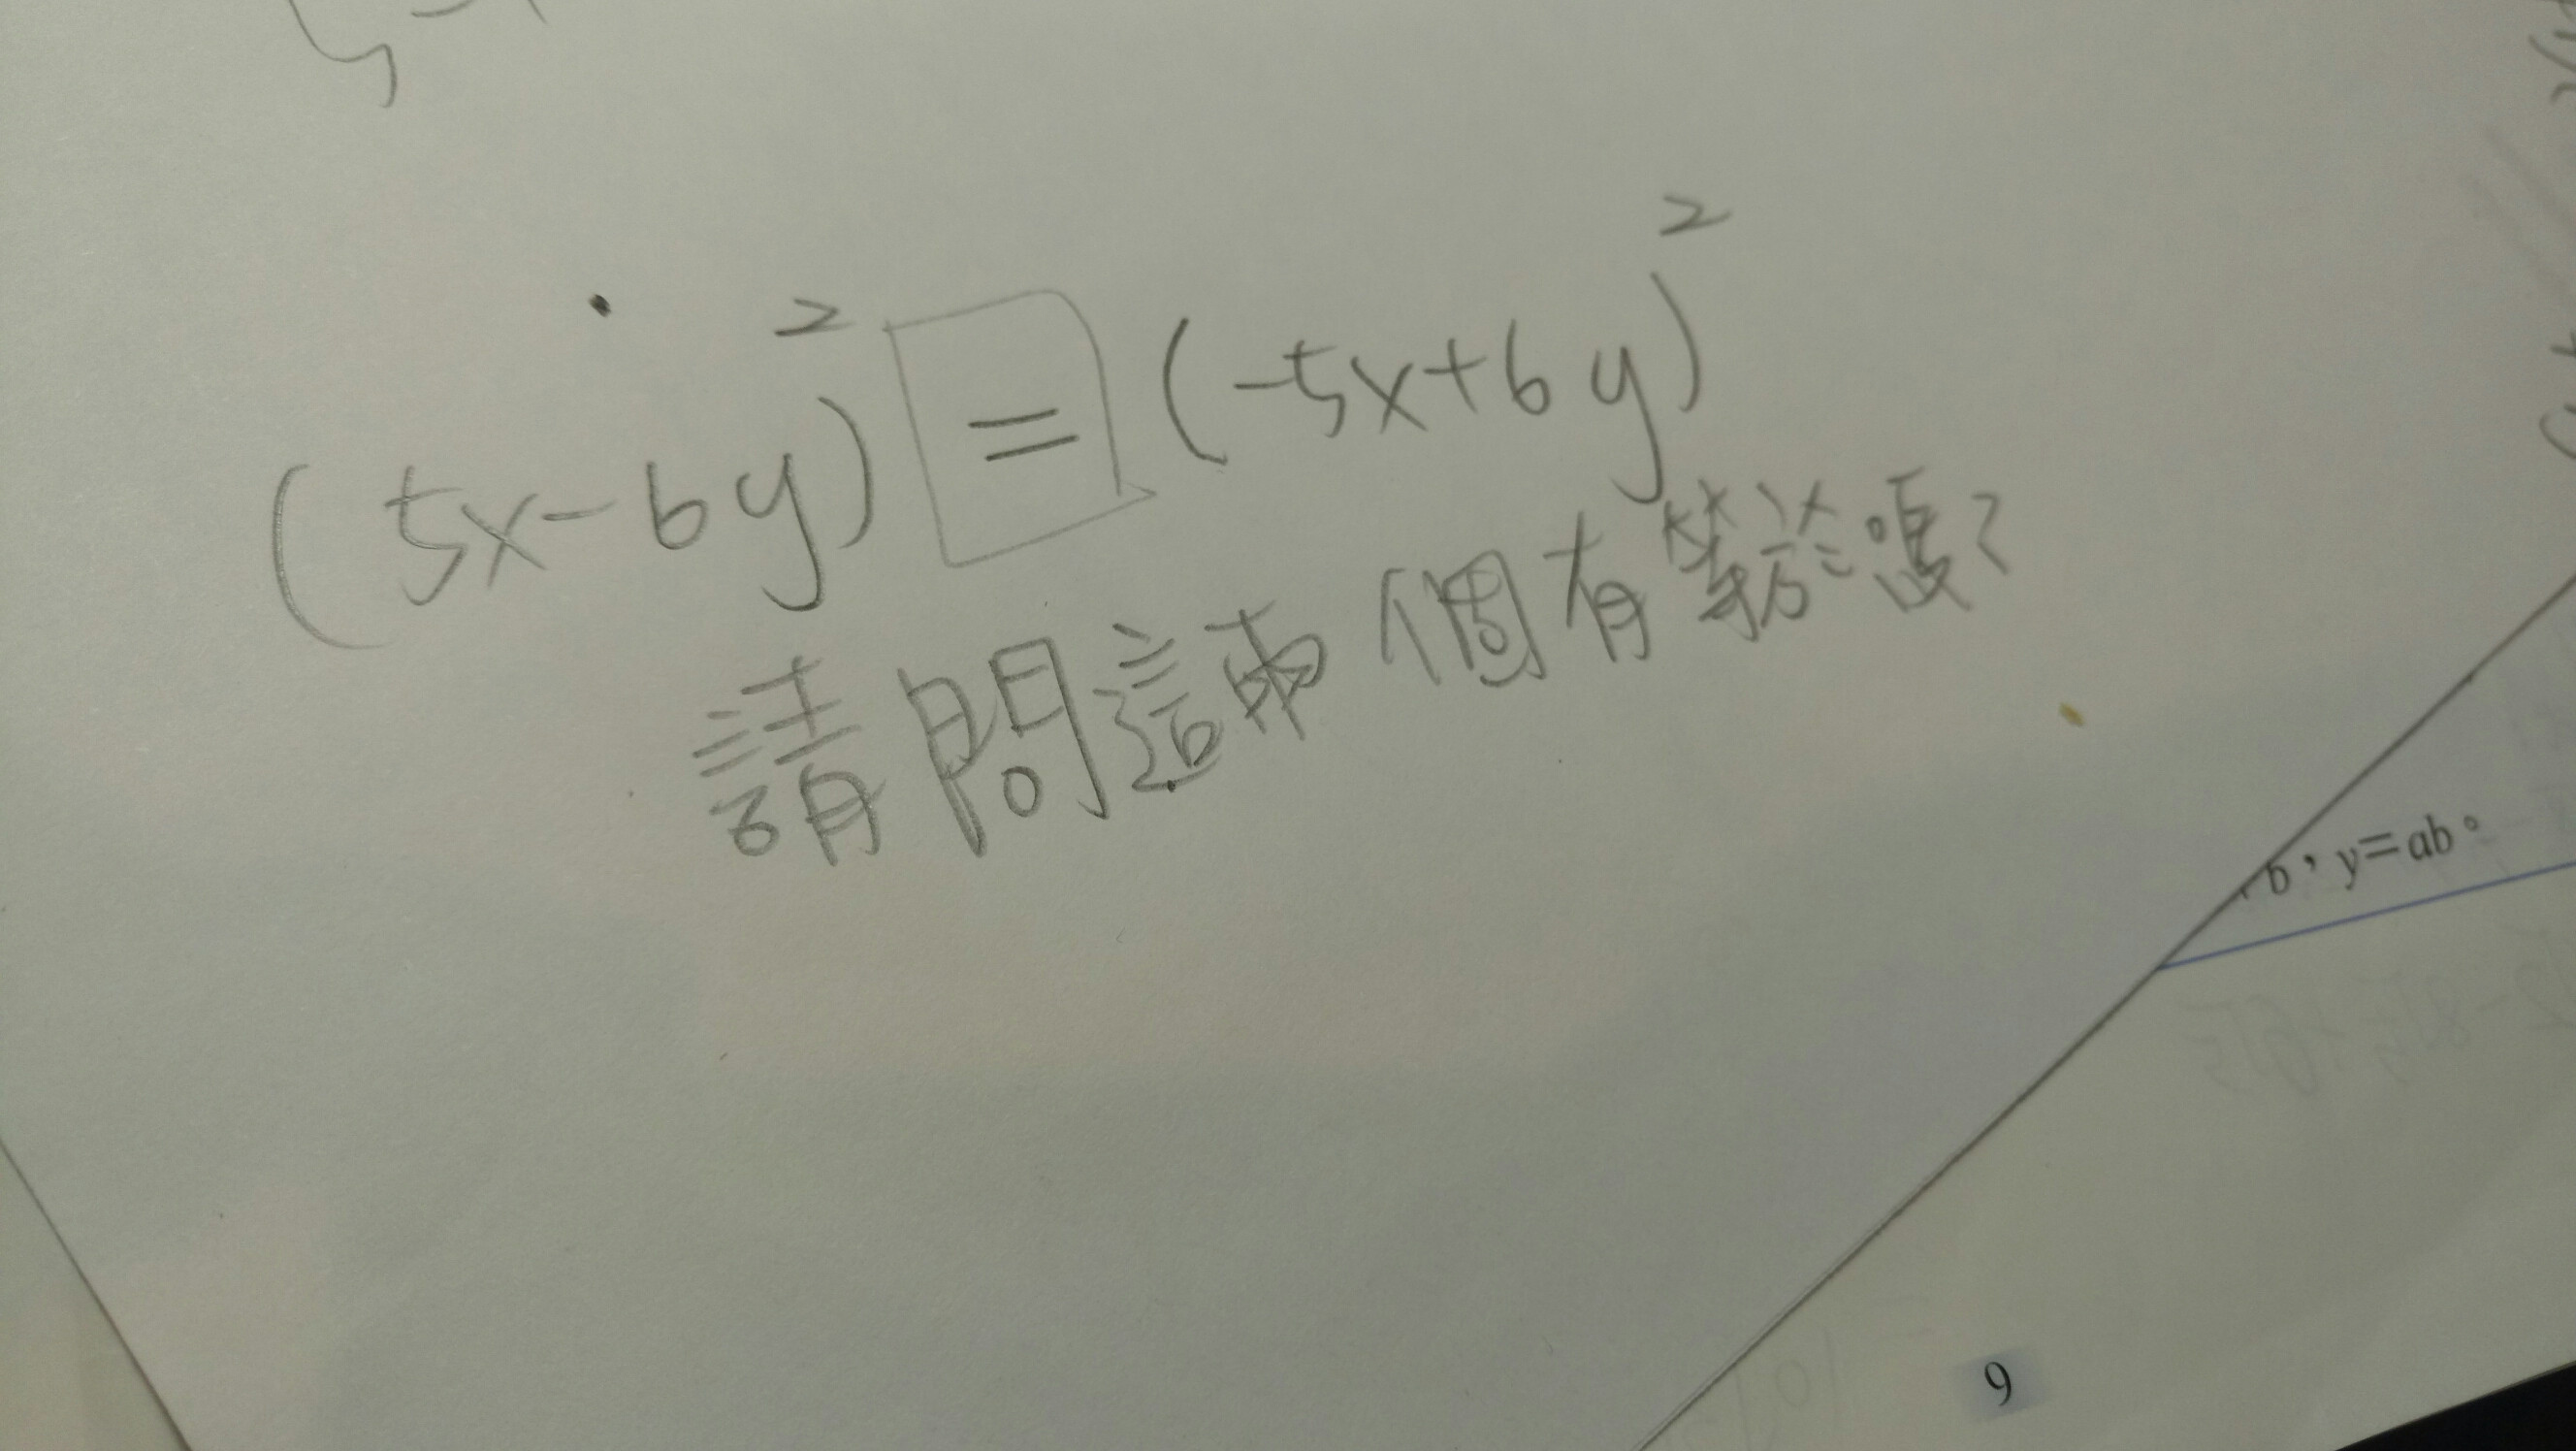 (5x-6y)² = (-5x+6y)²
請問這兩個有等於嗎?
b，y=ab。
9